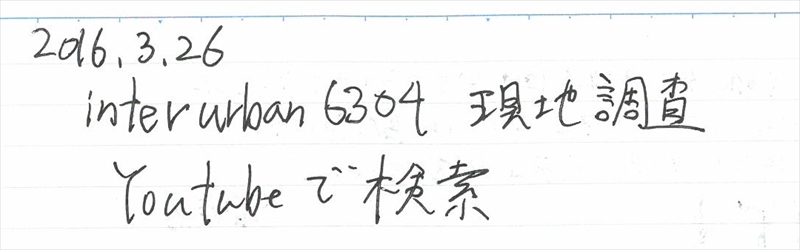 2016.3.26
interurban 6304 現地調査
Youtubeで検索